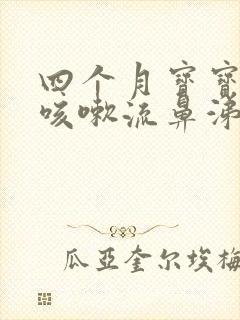 四个月宝宝
咳嗽流鼻涕
瓜亚奎尔埃梅